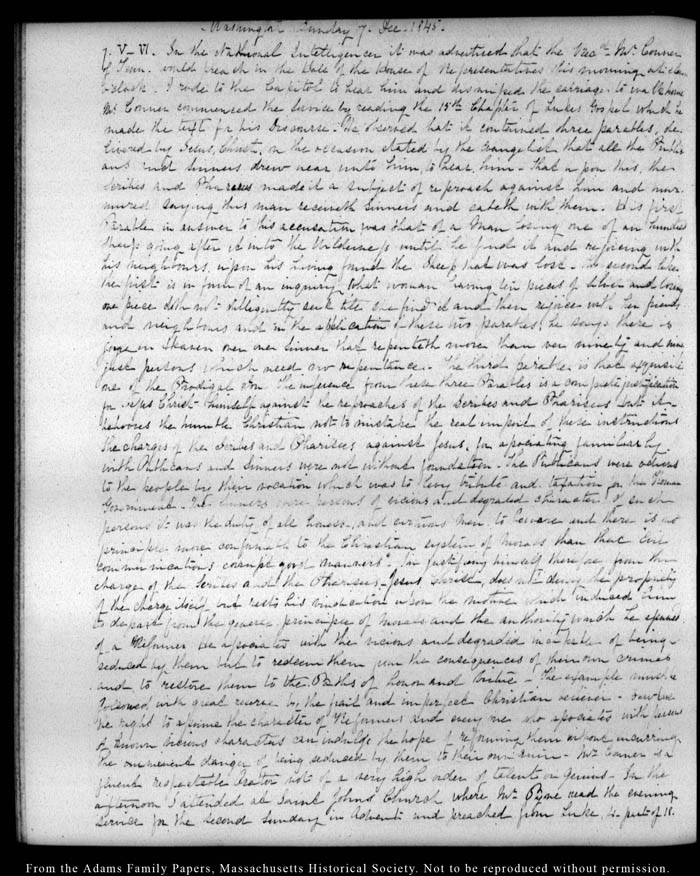 Washington Sunday 7. Dec. 1845.
7. V–VI. In the National Intelligencer it was advertised that the Revd. Mr. Conner
of Tenn. would preach in the Hall of the House of Representatives this morning at eleven
o'clock. I rode to the Capitol to hear him and dismissed the carriage to go home
Mr. Conner commenced the service by reading the 15th. Chapter of Lukes Gospel which he
made the text for his Discourse. He observed that it contained three parables, de-
livered by Jesus Christ, on the occasion stated by the Evangelist that all the Public-
ans and sinners drew near unto him to hear him – that upon this, the
Scribes and Pharisees made it a subject of reproach against him and mur-
mured saying this man receiveth Sinners and eateth with them. His first
Parable in answer to this accusation was that of a Man losing one of an hundred
sheep going after it into the Wilderness until he find it and rejoicing with
his neighbours, upon his having found the sheep that was lost – The second like
the first is in form of an inquiry what woman having ten pieces of silver and losing
one piece doth not diligently seek till she find it and then rejoice with her friends
and neighbours and in the application of these two parables, he says there is
joy in Heaven over one sinner that repenteth more than over ninety and nine
just persons which need no repentance. The third parable is that exquisite
one of the Prodigal son. The inference from these three Parables is a complete justification
for Jesus Christ himself against the reproaches of the Scribes and Pharisees but it
behooves the humble Christian not to mistake the real import of these instructions
the charges of the Scribes and Pharisees against Jesus, for associating familiarly
with Publicans and Sinners were not without foundation. The Publicans were odious
to the people by their vocation which was to levy tribute and taxation for the Roman
Government – The Sinners were persons of vicious and degraded character, of such
persons it was the duty of all honest and virtuous men to beware and there is no
principle more conformable to the Christian system of Morals than that evil
communications corrupt good manners. In justifying himself therefore from the
charge of the Scribes and the Pharisees Jesus Christ does not deny the propriety
of the charge itself but rests his vindication upon the motive which induced him
to depart from the general principle of morals and the authority which he assumed
of a Reformer he associates with the vicious and degraded not at peril of being
seduced by them but to redeem them from the consequences of their own crimes
and to restore them to the Paths of honor and Virtue – The example must be
followed with great reserve by the frail and imperfect Christian believer –
no right to assume the character of Reformers and every one who associates with persons
of known vicious characters can indulge the hope of reforming them without incurring
the imminent danger of being seduced by them to their own ruin – Mr. Conner is a
fluent respectable Orator not of a very high order of talent or Genius – In the
afternoon I attended at Saint John's Church where Mr. Pyne read the evening
service for the second Sunday in Advent and preached from Luke, part of 11.
From the Adams Family Papers, Massachusetts Historical Society. Not to be reproduced without permission.